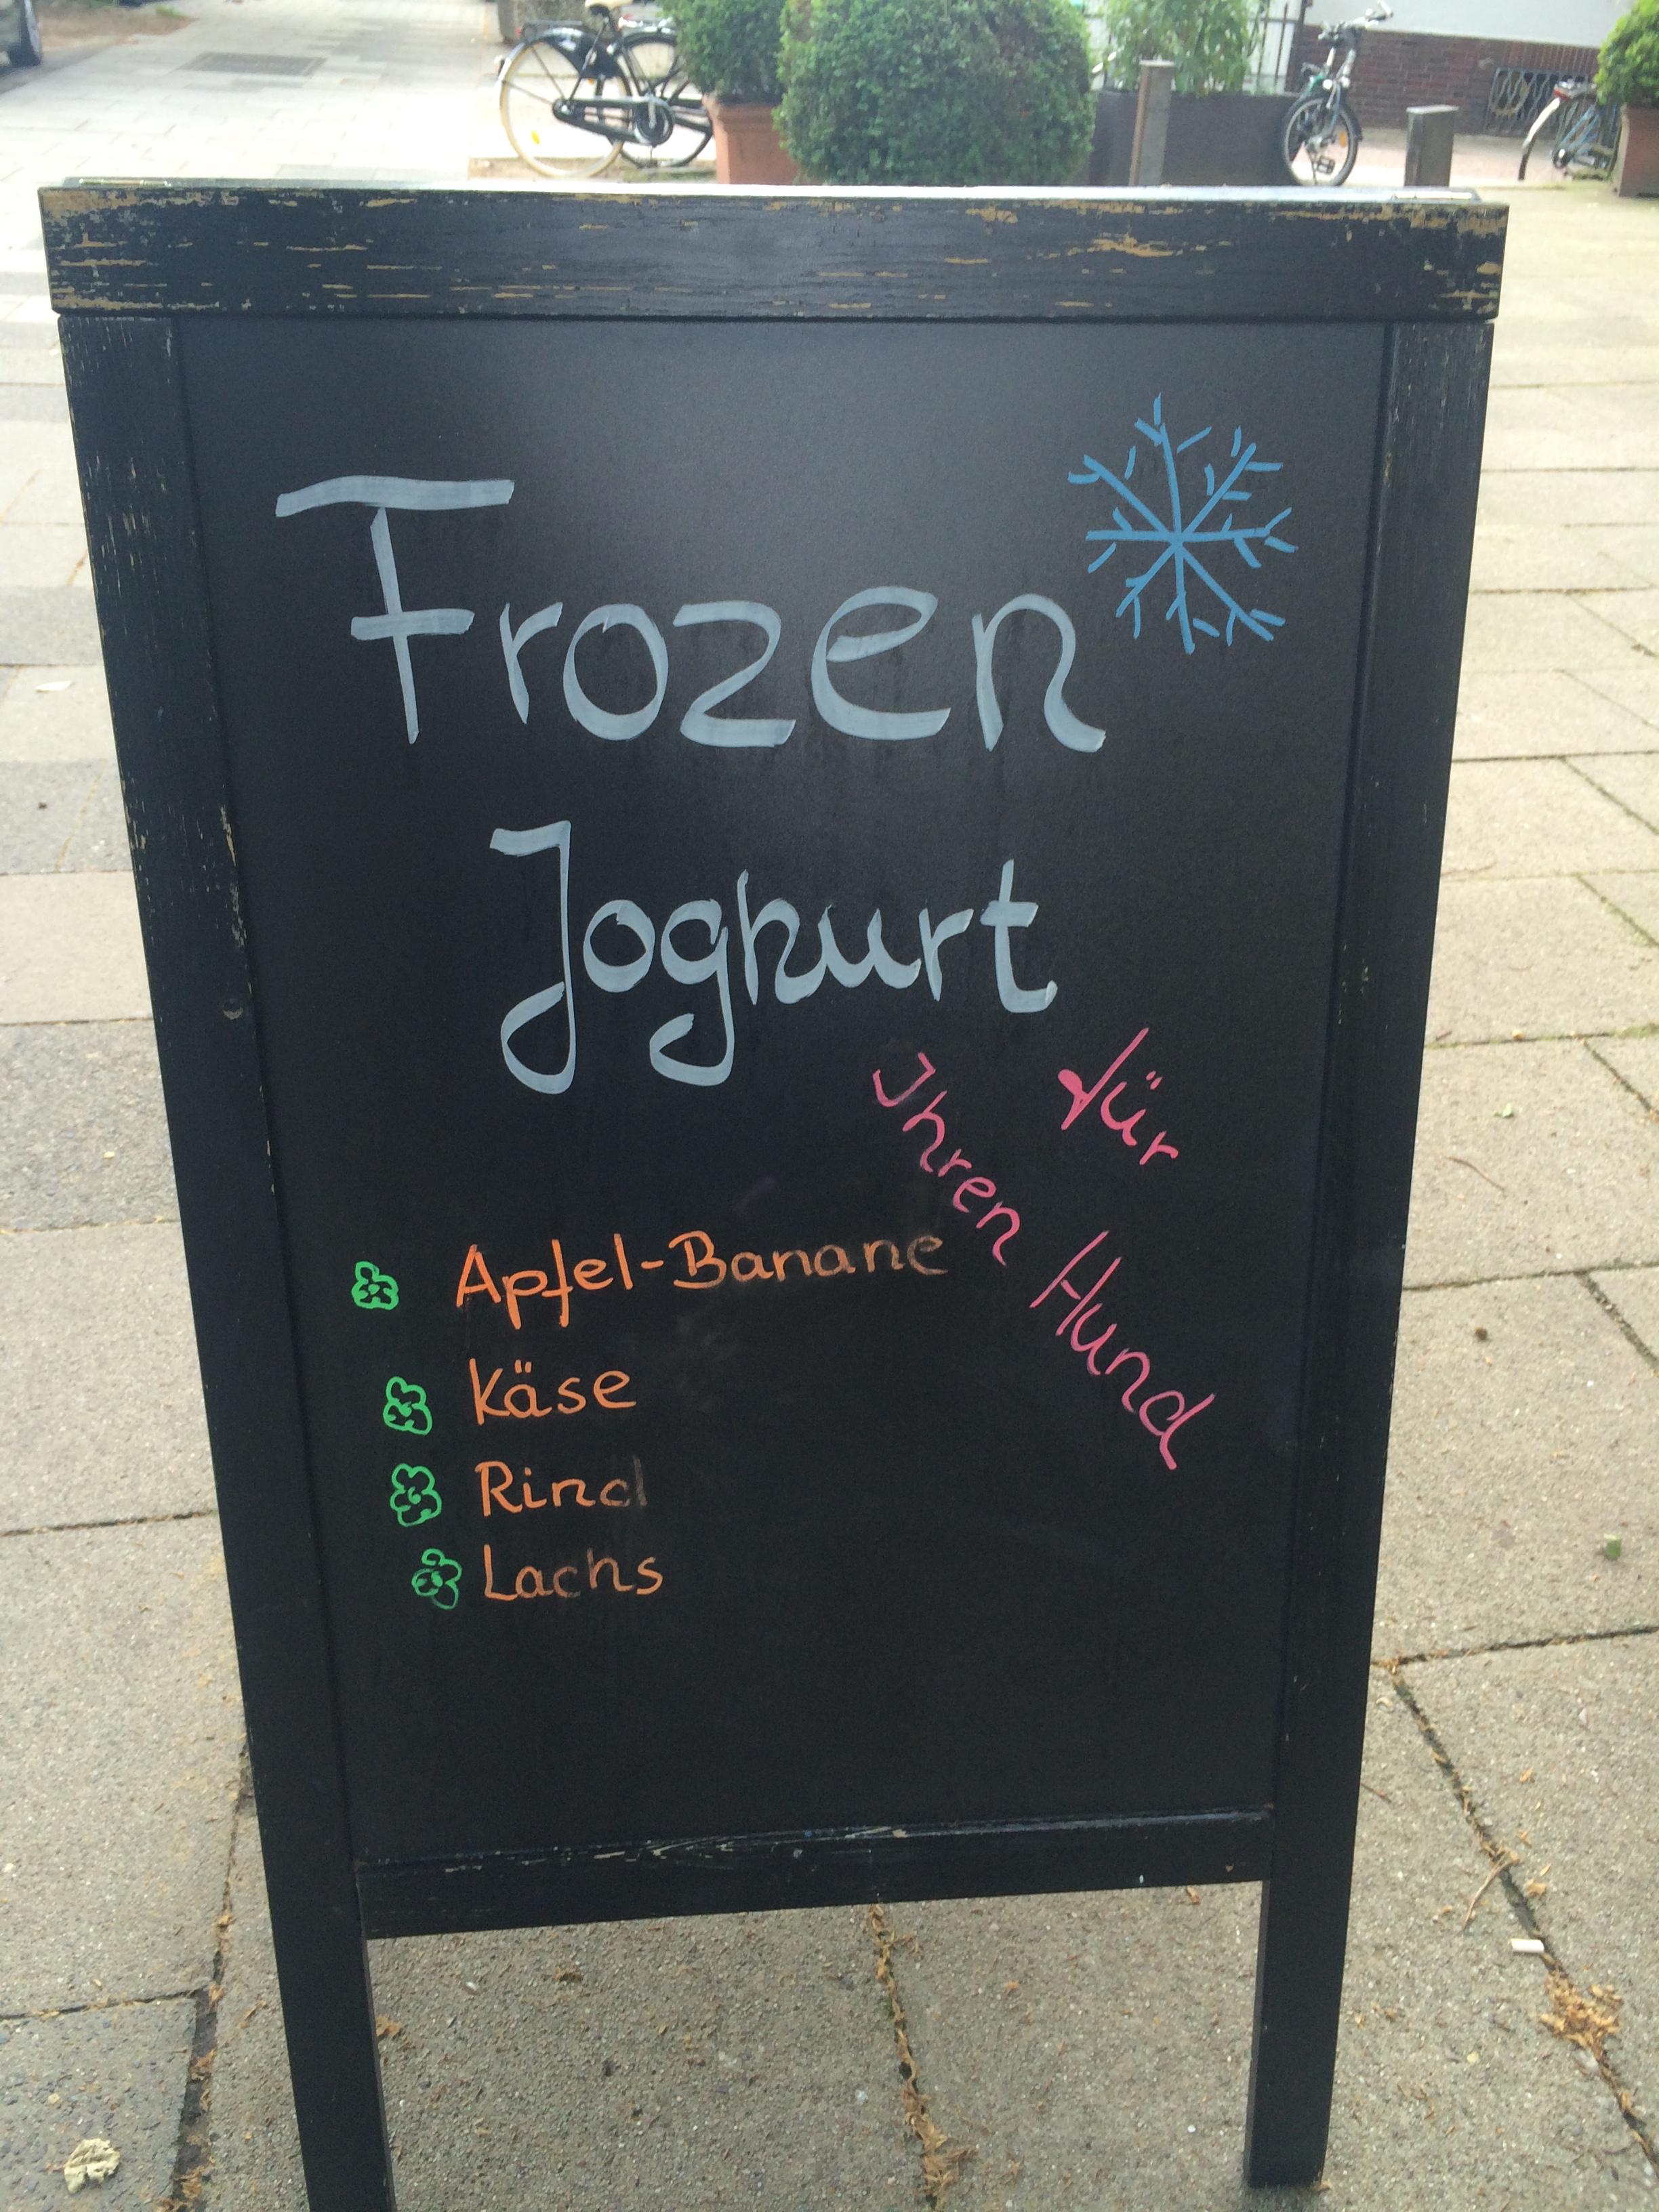 Frozen
Joghurt
für
Ihren Hund
Apfel-Banane
Käse
Rind
Lachs